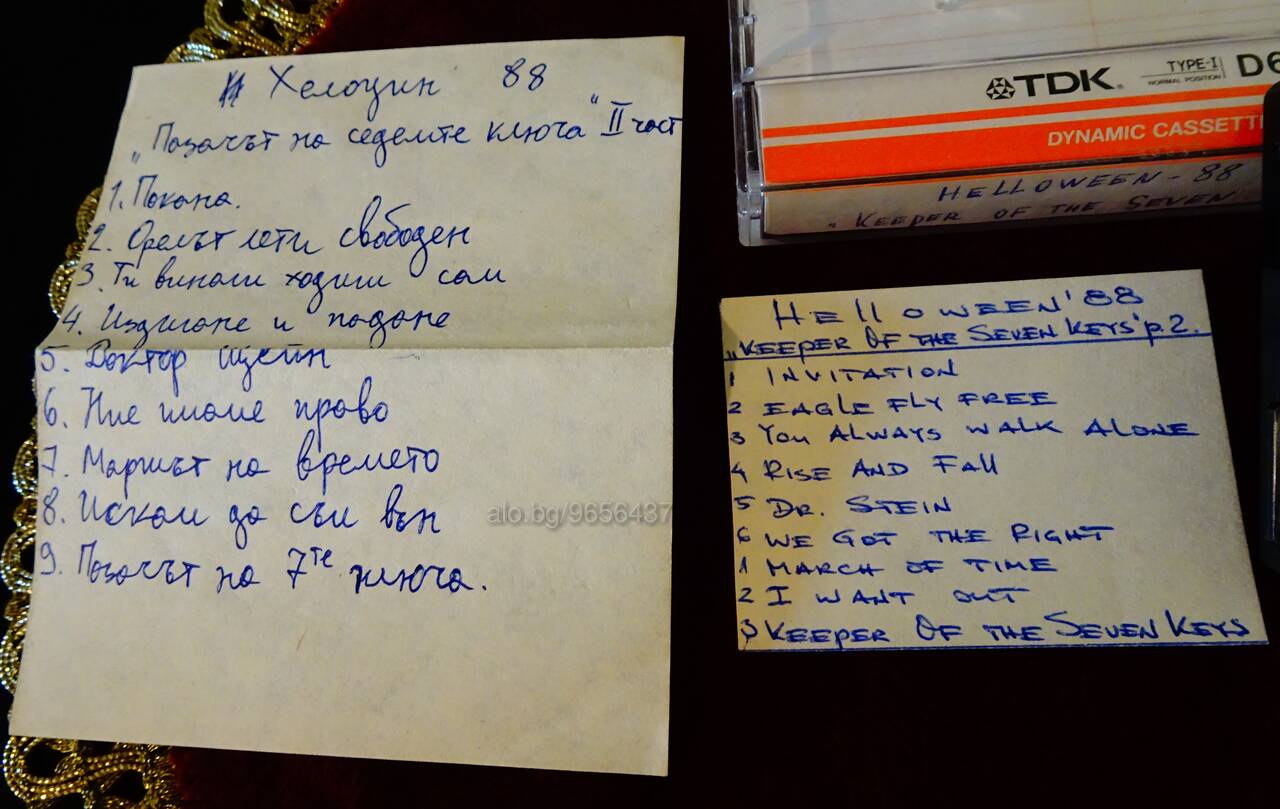 Хелоуин 88
„Пазачът на седемте ключа“ II част
1. Покана.
2. Орелът лети свободен
3. Ти винаги ходиш сам
4. Издигане и падане
5. Доктор Щейн
6. Ние имаме право
7. Маршът на времето
8. Искам да съм вън
9. Пазачът на 7те ключа.
alo.bg/9656437
TDK
TYPE-I
NORMAL POSITION
D6
DYNAMIC CASSETT
HELLOWEEN - 88
„KEEPER OF THE SEVEN
HELLOWEEN'88
„KEEPER OF THE SEVEN KEYS" p.2.
1 INVITATION
2 EAGLE FLY FREE
3 YOU ALWAYS WALK ALONE
4 RISE AND FALL
5 DR. STEIN
6 WE GOT THE RIGHT
1 MARCH OF TIME
2 I WANT OUT
3 KEEPER OF THE SEVEN KEYS